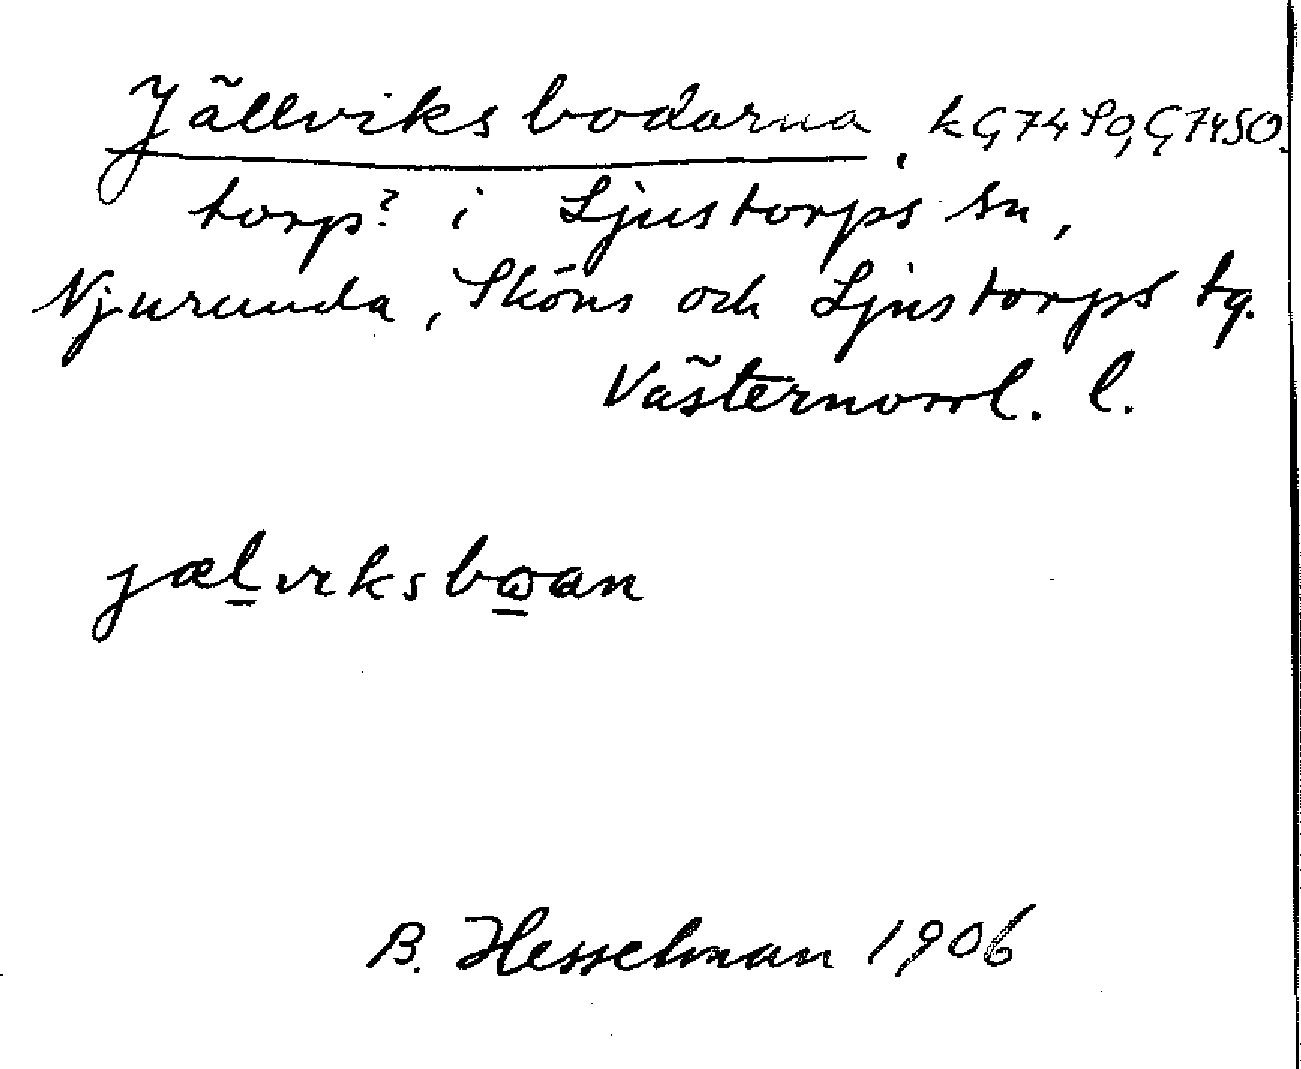 Jällviksbodarna, k G 7490, G 7450.
torp? i Ljustorps sn,
Njurunda, Sköns och Ljustorps tg.
Västernorrl. l.
jælviksbωan
B. Hesselman 1906